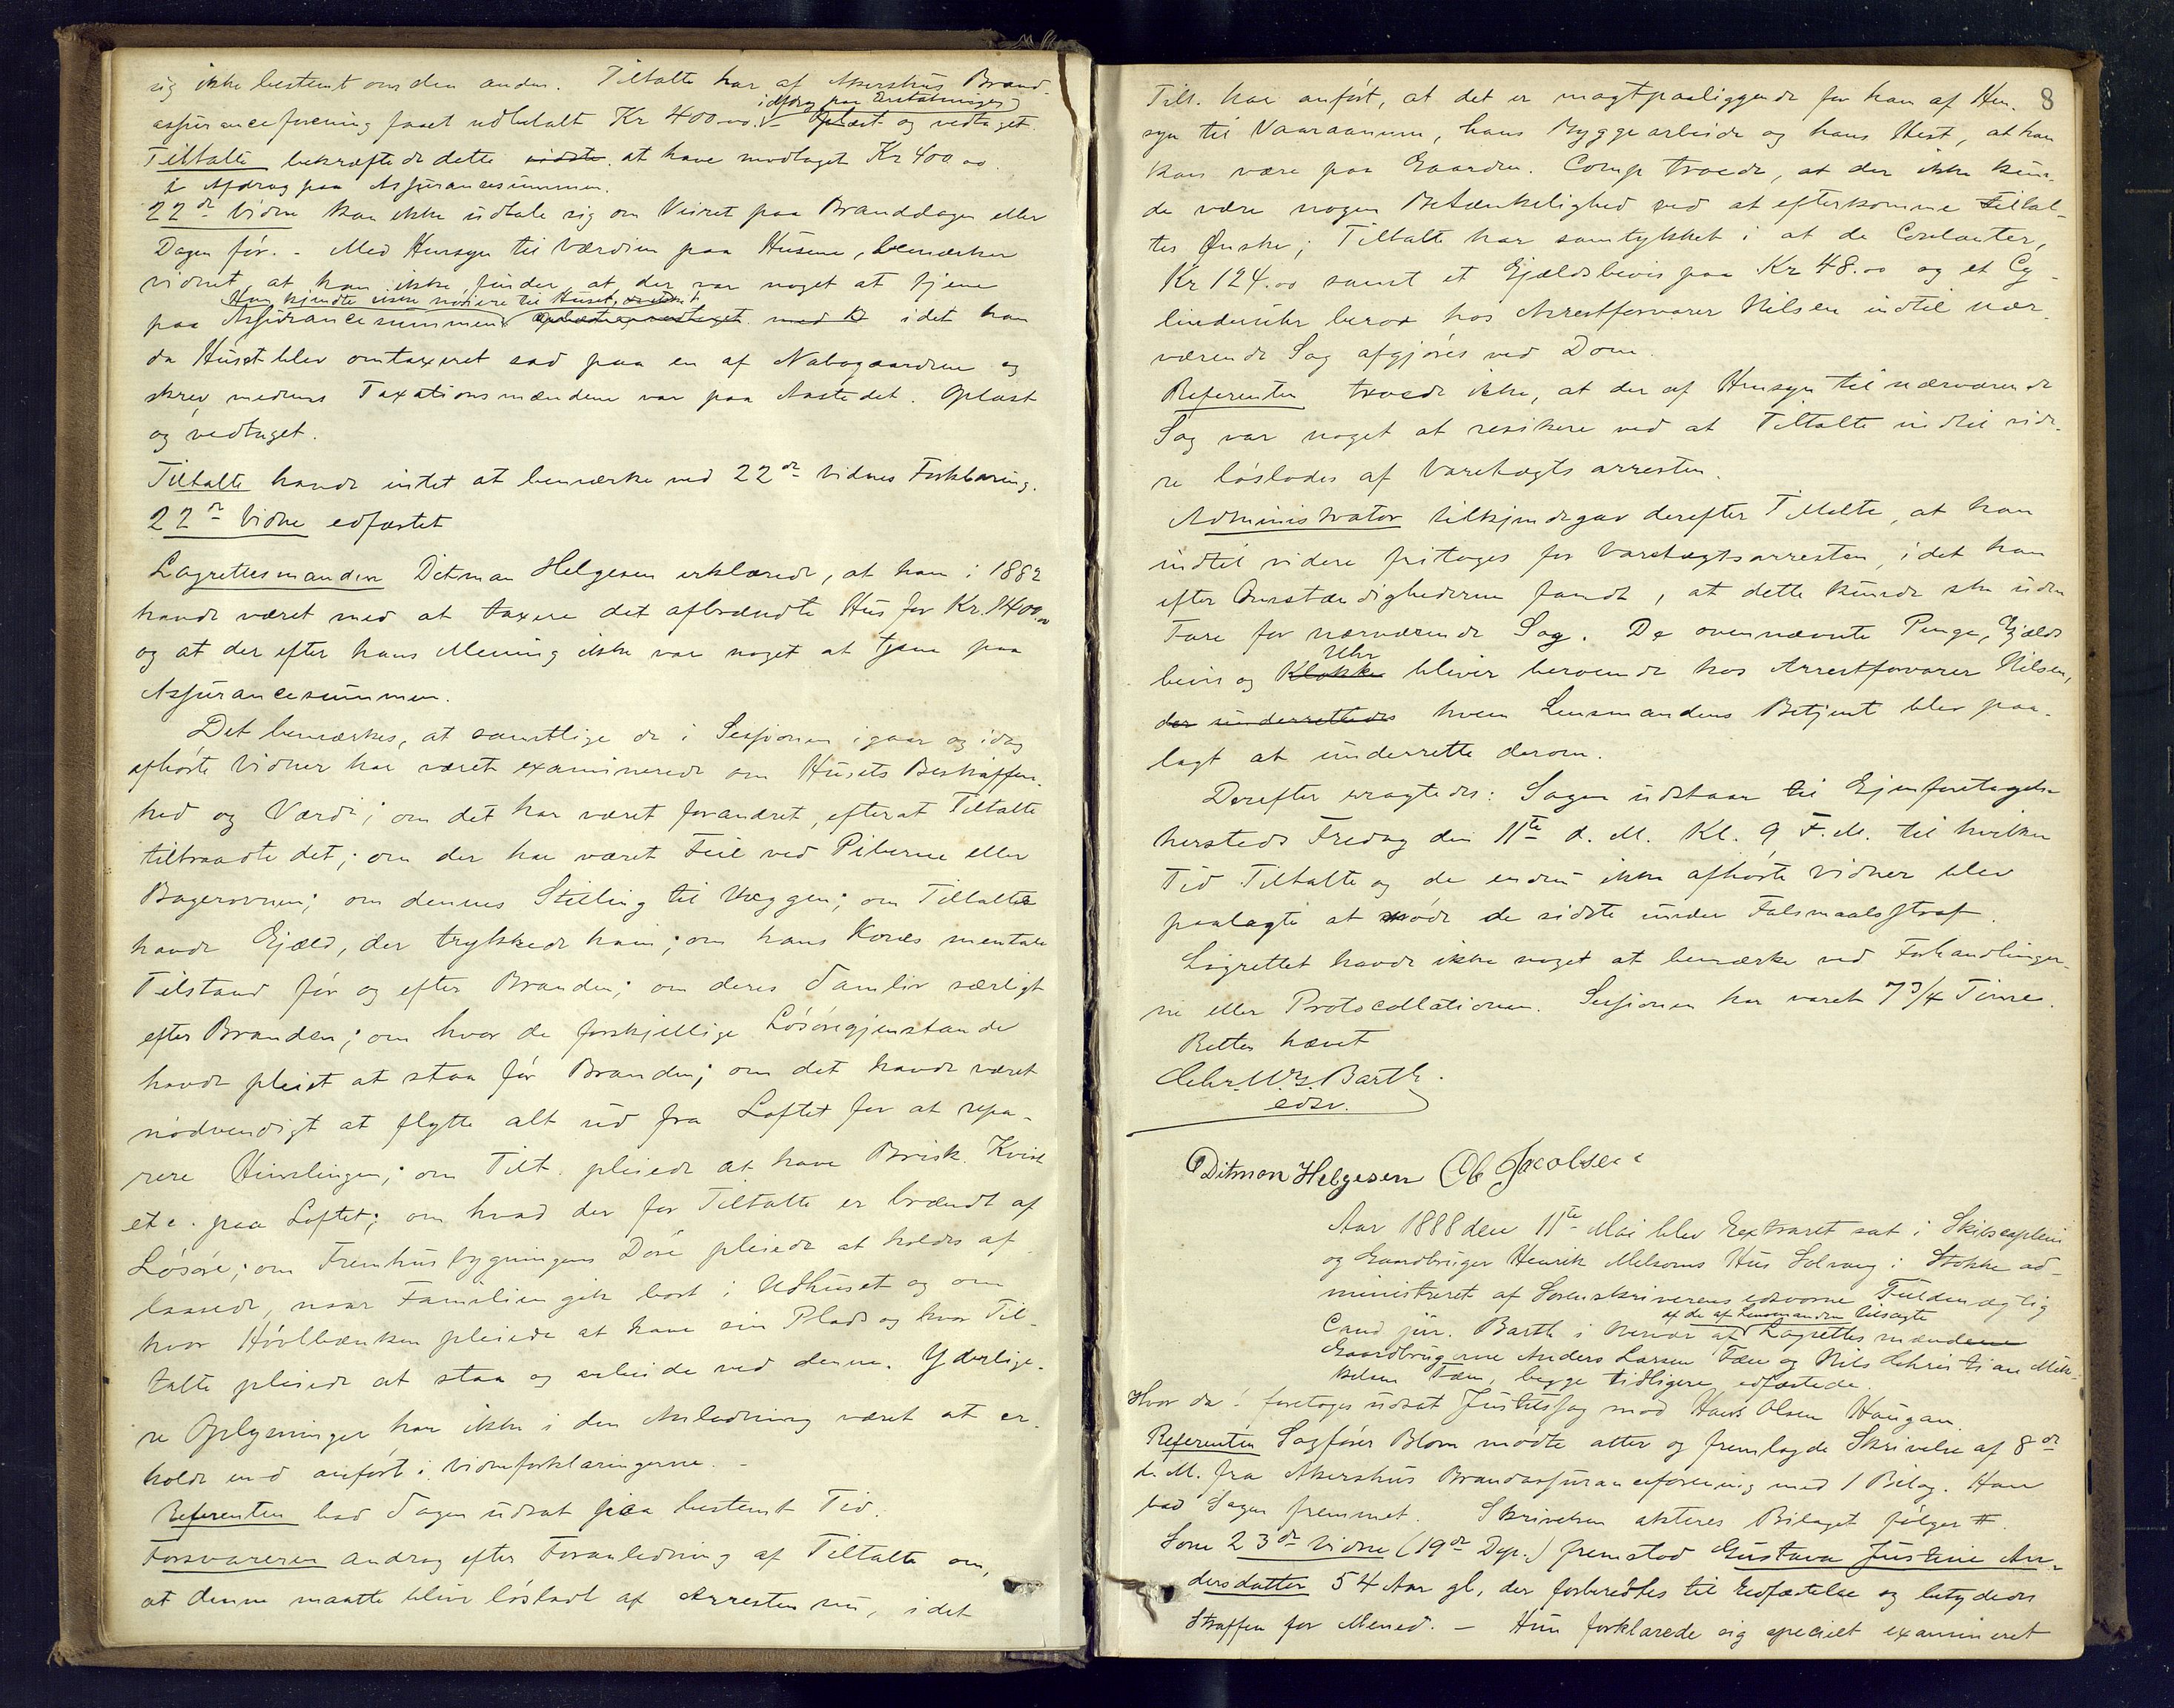 sig ikke bestemt om den anden. Tiltalte har af Akershus Brand-
assuranceforening faaet udbetalt Kr 400.00. i Afdrag paa Erstatningen Oplæst og vedtaget.
Tiltalte bekræftede dette at have modtaget Kr 400.00
i Afdrag paa Assurancesummen.
22de Vidne kan ikke udtale sig om Veiret paa Branddagen eller
Dagen før. - Med Hensyn til Værdien paa Husene, bemærker
vidnet, at han ikke finder, at der var noget at tjene
Han kjendte ikke nøiere til Huset,
paa Assurancesummen idet han
da Huset blev omtaxeret sad paa en af Nabogaardene og
skrev medens Taxationsmændene var paa Aastedet. Oplæst
og vedtaget.
Tiltalte havde intet at bemærke ved 22de Vidnes Forklaring.
22de Vidne edfæstet
Lagrettesmanden Ditman Helgesen erklærede, at han i 1882
havde været med at taxere det afbrændte Hus for Kr. 1400.00
og at der efter hans Mening ikke var noget at tjene paa
Assurancesummen.
Det bemærkes, at samtlige de i Sessionen igaar og idag
afhørte Vidner har været examinerede om Husets Beskaffen-
hed og Værdi; om det har været forandret, efterat Tiltalte
tiltraadte det; om der har været Feil ved Piberne eller
Bagerovnen; om dennes Stilling til Væggen; om Tiltalte
havde Gjæld, der trykkede ham; om hans Kones mentale
Tilstand før og efter Branden; om deres Samliv særligt
efter Branden; om hvor de forskjellige Løsøregjenstande
havde pleiet at staa før Branden; om det havde været
nødvendigt at flytte alt ud fra Loftet for at repa-
rere Himlingen; om Tilt. pleiede at have Brisk. Kvist
etc. paa Loftet; om hvad der for Tiltalte er brændt af
Løsøre; om Fremhusbygningens Døre pleiede at holdes af-
laasede, naar Familien gik bort i Udhuset og om
hvor Høvlbænken pleiede at have sin Plads og hvor Til-
talte pleiede at staa og arbeide ved denne. Yderlige-
re Oplysninger har ikke i den Anledning været at er-
holde end anført i Vidneforklaringerne. -
Referenten bad Sagen udsat paa bestemt Tid.
Forsvareren androg efter Foranledning af Tiltalte om,
at denne maatte blive løsladt af Arresten nu, idet
8
Tilt. har anført, at det er magtpaaliggende for ham af Hen-
syn til Vaaraannen, hans Byggearbeide og hans Hest, at han
kan være paa Gaarden. Comp troede, at der ikke kun-
de være nogen Betænkelighed ved at efterkomme Tiltal-
tes Ønske; Tiltalte har samtykket i at de Contanter,
Kr 124.00 samt et Gjældsbevis paa Kr 48.00 og et Cy-
linderuhr beror hos Arrestforvarer Nilsen indtil nær-
værende Sag afgjøres ved Dom.
Referenten troede ikke, at der af Hensyn til nærværende
Sag var noget at resikere ved at Tiltalte indtil vide-
re løslades af Varetægtsarresten.
Administrator tilkjendegav derefter Tiltalte, at han
indtil videre fritages for Varetægtsarresten, idet han
efter Omstændighederne fandt, at dette kunde ske uden
Fare for nærværende Sag. De ovennævnte Penge, Gjælds
bevis og Klokke Uhr bliver beroende hos Arrestforvarer Nilsen,
der underrettedes hvem Lensmandens Betjent blev paa-
lagt at underrette derom.
Derefter eragtedes: Sagen udstaar til Gjenforetagelse
hersteds Fredag den 11te d. M. Kl. 9 F.M. til hvilken
Tid Tiltalte og de endnu ikke afhørte Vidner blev
paalagte at møde de sidste under Falsmaalsstraf.
Lagrettet havde ikke noget at bemærke ved Forhandlinger-
ne eller Protocollationen. Sessionen har varet 7 3/4 Time.
Retten hævet
Chr. Barth.
edsv.
Ditman Helgesen Ob Jacobsen
Aar 1888 den 11te Mai blev Extraret sat i Skibscaptein
og Gaardbruger Henrik Melsoms Hus Solvang i Stokke ad-
ministreret af Sorenskriverens edsvorne Fuldmægtig
Cand jur. Barth i Nærvær af de af Lensmanden tilsagte Lagrettesmændene
Gaardbrugerne Anders Larsen Fæn og Nils Christian Mik-
kelsen Fæn, begge tidligere edfæstede.
Hvor da! foretoges udsat Justitssag mod Hans Olsen Haugan.
Referenten Sagfører Blom mødte atter og fremlagde Skrivelse af 8de
d. M. fra Akershus Brandassuranceforening med 1 Bilag. Han
bad Sagen fremmet. Skrivelsen akteres Bilaget følger #.
Som 23de Vidne (19de Dep.) fremstod Gustava Justine An-
dersdatter 54 Aar gl, der forberedtes til Edfæstelse og betydedes
Straffen for Mened. - Hun forklarede sig specielt examineret